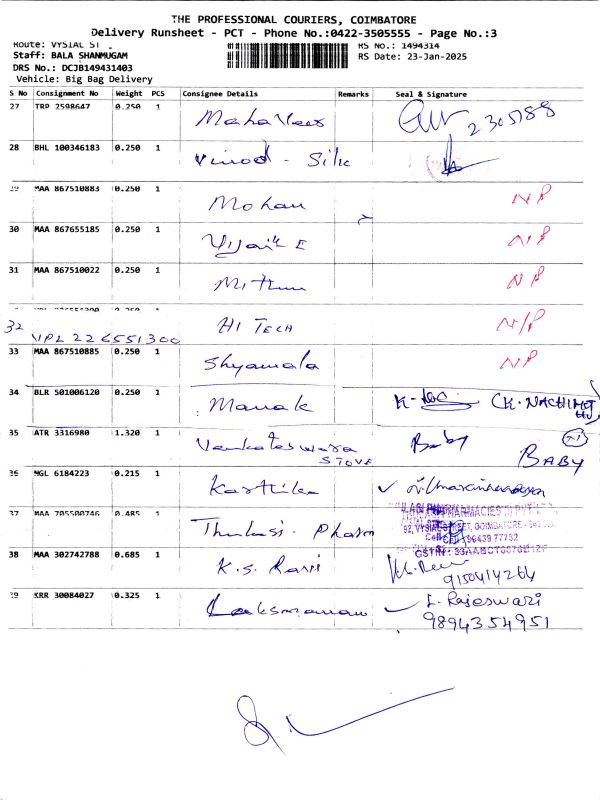 THE PROFESSIONAL COURIERS, COIMBATORE
Delivery Runsheet - PCT - Phone No.:0422-3505555 - Page No.:3
Route: VYSIAL ST
RS No.: 1494314
Staff: BALA SHANMUGAM
RS Date: 23-Jan-2025
DRS No.: DCJB149431403
Vehicle: Big Bag Delivery
S No Consignment No Weight PCS Consignee Details Remarks Seal & Signature
27 TRP 2598647 0.250 1 Mahaveer 2305188
28 BHL 100346183 0.250 1 Vinod - Silk
29 MAA 867510883 0.250 1 Mohan NP
30 MAA 867655185 0.250 1 Vijai E NP
31 MAA 867510022 0.250 1 Mithun NP
32 VPL 226551300 HI TECH N/P
33 MAA 867510885 0.250 1 Shyamala NP
34 BLR 501006120 0.250 1 Manak
35 ATR 3316980 1.320 1 Venkateswara STOVE Baby BABY
36 NGL 6184223 0.215 1 Karthika
37 MAA 785508746 0.485 1 Thulasi - Pharm
38 MAA 302742788 0.685 1 K.S. Ravi 9150414264
39 KRR 30084027 0.325 1 Laksmanan L. Rajeswari
9894354951